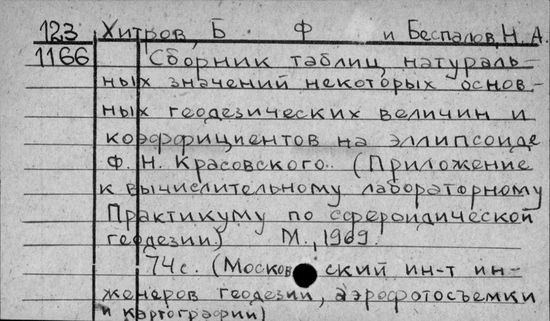 123 Хитров, Б Ф и Беспалов, Н. А.
1166 Сборник таблиц натураль-
ных значений некоторых основ-
ных геодезических величин и
коэффициентов на эллипсоиде
Ф. Н. Красовского. (Приложение
к вычислительному лабораторному
Практикуму по сфероидической
геодезии) М., 1969.
74с. (Москов ский ин-т ин-
женеров геодезии, аэрофотосъемки
и картографии)